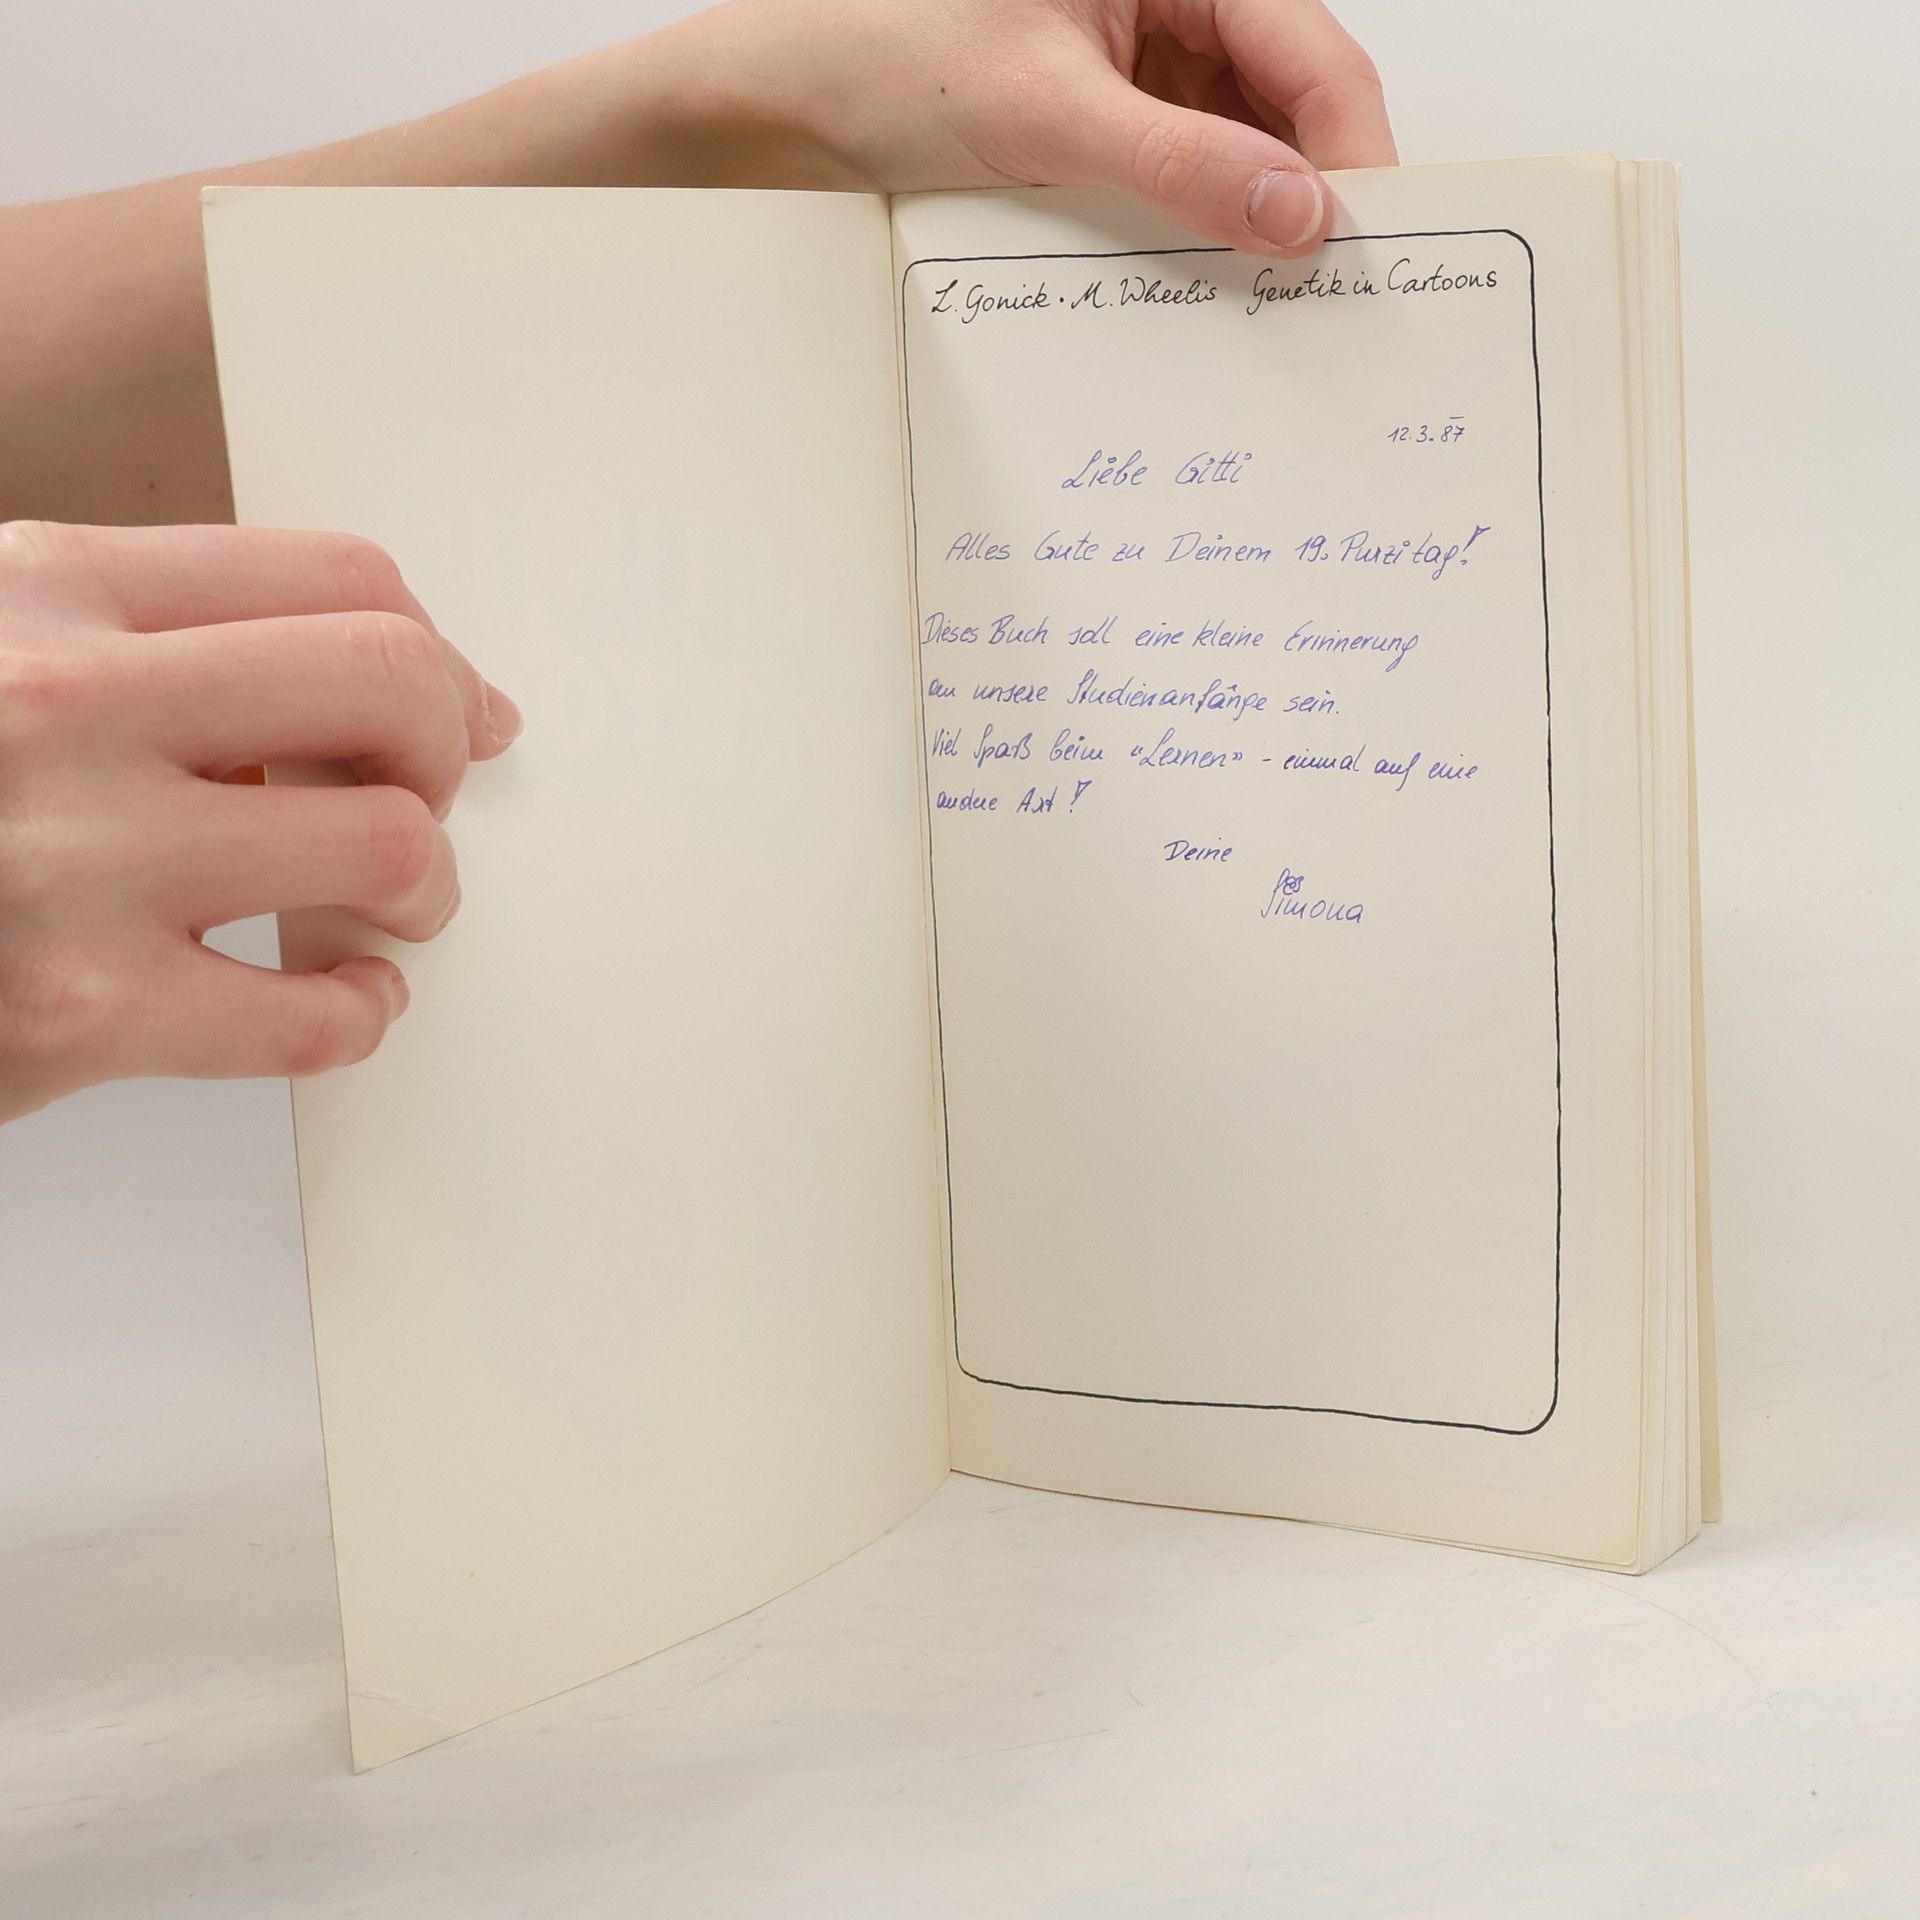 L. Gonick · M. Wheelis Genetik in Cartoons
12.3.87
Liebe Gitti
Alles Gute zu Deinem 19. Purzitag!
Dieses Buch soll eine kleine Erinnerung
an unsere Studienanfänge sein.
Viel Spaß beim "Lernen" - einmal auf eine
andere Art!
Deine
Simona